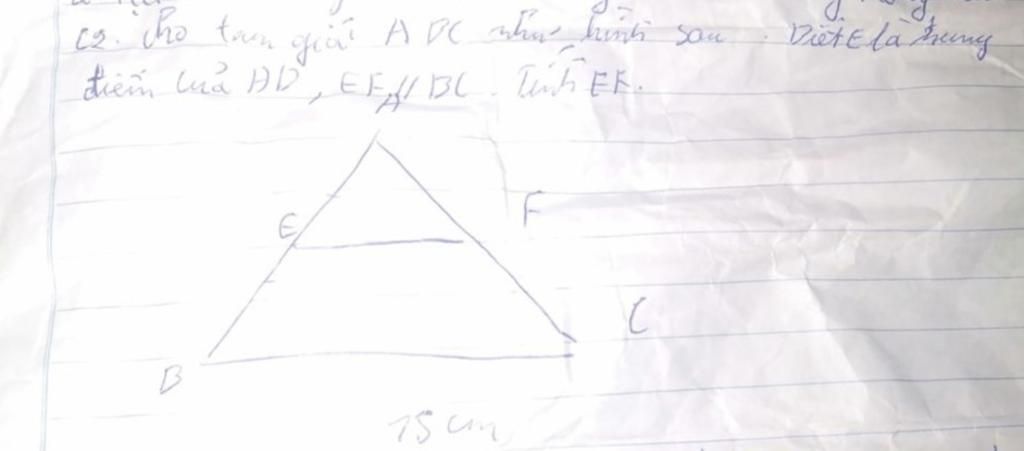 C2. Cho tam giác ABC như hình sau. Biết E là trung
điểm của AB, EF // BC. Tính EF.
A
E
F
C
B
15 cm